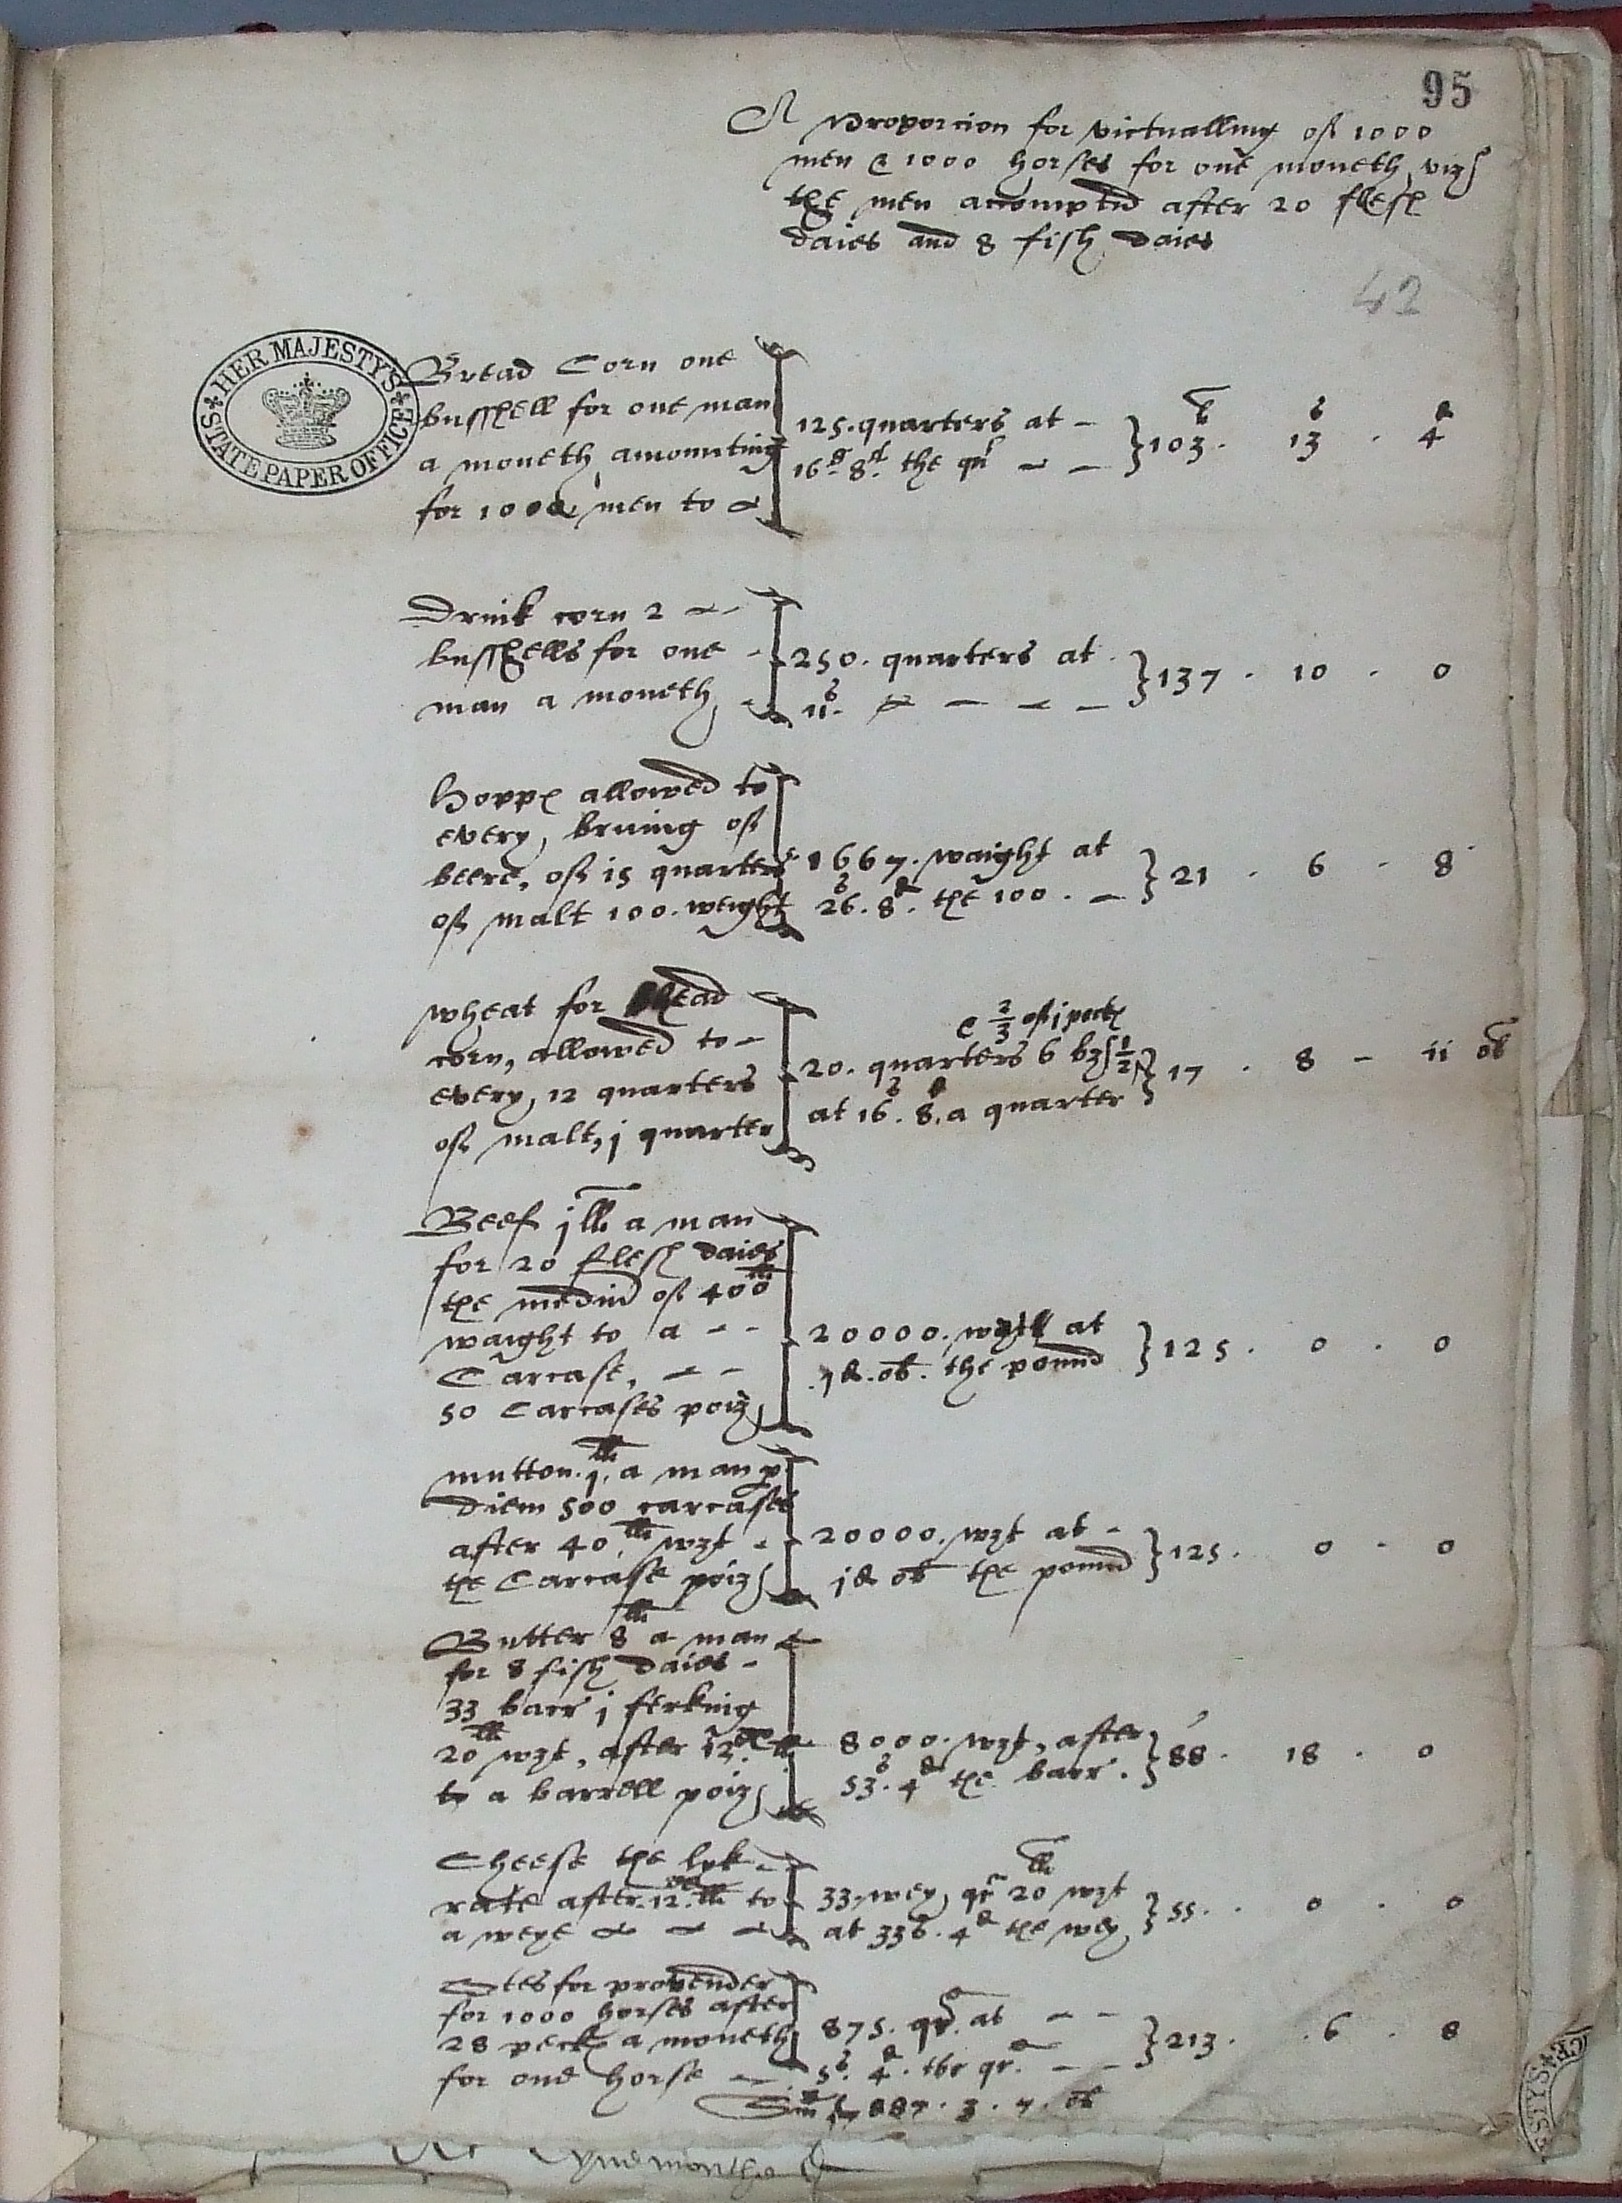 95
A Proporcion for victualling of 1000
men & 1000 horses for one moneth, viz
the men accompted after 20 flesh
daies and 8 fish daies
42
HER MAJESTY'S
STATE PAPER OFFICE
Bread Corn one
busshell for one man
a moneth, amounting
for 1000 men to
125. quarters at
16s. 8d. the qr
li s d
103. 13. 4
Drink corn 2
busshells for one
man a moneth
250. quarters at
11s.
137. 10. 0
Hoppes allowed to
every bruing of
beere, of 15 quarters
of malt 100. weight
1667. waight at
26s. 8d. the 100.
21. 6. 8
wheat for head
corn, allowed to
every, 12 quarters
of malt, j quarter
& 2/3 of j peck
20. quarters 6 bz 1/2
at 16s. 8d. a quarter
17. 8 - 11 ob
Beef j lb a man
for 20 flesh daies
the medium of 400 lb
waight to a
Carcase,
50 Carcases poiz
20000. wght at
jd. ob. the pound
125. 0. 0
mutton. j lb. a man p
diem 500 carcases
after 40 lb wght
the Carcase poiz
20000. wght at
jd ob the pound
125. 0. 0
Butter 8 lb a man
for 8 fish daies
33 barr j ferking
20 lb wght, after 12xx lb
to a barrell poiz
8000. wght, after
53s. 4d the barr.
88. 18. 0
Cheese the lyk
rate after 12xx lb to
a weye
33. wey, qr 20 lb wght
at 33s. 4d the wey
55. 0. 0
Otes for provender
for 1000 horses after
28 peckes a moneth
for one horse
875. qr. at
5s. 4d. the qr.
213. 6. 8
Sm li 887. 3. 7. ob
Tynemouthe